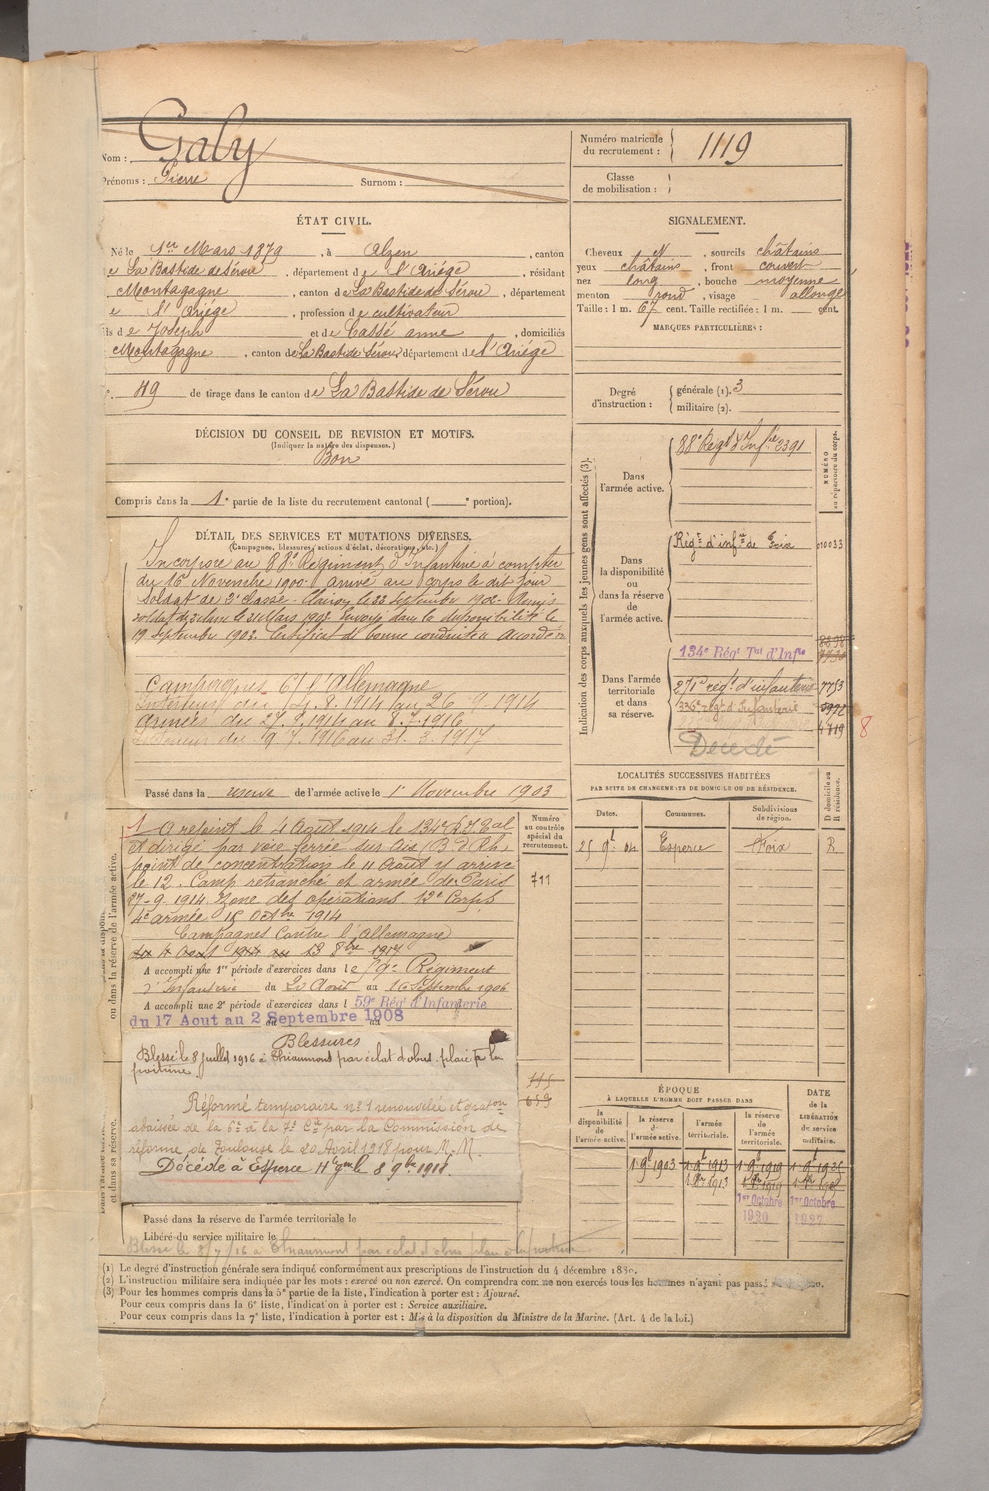 Nom : Galy
Prénoms : Pierre Surnom :
Numéro matricule du recrutement : 1119
Classe de mobilisation :
ÉTAT CIVIL.
Né le 1er Mars 1879, à Alzen, canton
e La Bastide de Sérou, département de l'Ariége, résidant
Montagagne, canton de La Bastide de Sérou, département
e l'Ariège, profession de cultivateur
ils de Joseph et de Cassé anne, domiciliés
Montagagne, canton de La Bastide Sérou département de l'Ariége
49 de tirage dans le canton de La Bastide de Sérou
SIGNALEMENT.
Cheveux N, sourcils châtains
yeux châtains, front couvert
nez long, bouche moyenne
menton rond, visage allongé
Taille : 1 m. 67 cent. Taille rectifiée : 1 m. cent.
MARQUES PARTICULIÈRES :
Degré d'instruction : générale (1). 3
militaire (2).
DÉCISION DU CONSEIL DE REVISION ET MOTIFS.
(Indiquer la nature des dispenses.)
Bon
Compris dans la 1e partie de la liste du recrutement cantonal ( e portion).
DÉTAIL DES SERVICES ET MUTATIONS DIVERSES.
(Campagnes, blessures, actions d'éclat, décorations, etc.)
Incorporé au 88e Régiment d'Infanterie à compter
du 16 Novembre 1900. arrivé au corps le dit jour
Soldat de 2e classe. Clairon le 22 septembre 1902. Remis
soldat de 2e classe le 31 Mars 1903. Envoyé dans la disponibilité le
19 septembre 1903. Certificat de bonne conduite accordé
Campagnes Ct l'Allemagne
Intérieur du 4.8.1914 au 26.9.1914
Armées du 27.9.1914 au 8.7.1916
Intérieur du 9.7.1916 au 31.3.1917
Passé dans la réserve de l'armée active le 1er Novembre 1903
Indication des corps auxquels les jeunes gens sont affectés (3).
NUMÉRO au répertoire du corps.
Dans l'armée active. 88e Régt d'Infie 2391
Dans la disponibilité ou dans la réserve de l'armée active. Régt d'infie de Foix 010033
Dans l'armée territoriale et dans sa réserve.
134e Régt Tal d'Infie
271e régt d'infanterie 7753
336e régt d'Infanterie
4719
8
Décédé
LOCALITÉS SUCCESSIVES HABITÉES
PAR SUITE DE CHANGEMENTS DE DOMICILE OU DE RÉSIDENCE.
Dates. Communes. Subdivisions de région. D domicile ou R résidence.
25 9bre 04 Esperce Foix R
ou dans la réserve de l'armée active.
Numéro au contrôle spécial du recrutement.
711
1 A rejoint le 4 Août 1914 le 134e R.I. Tal
Et dirigé par voie ferrée sur Aix (B. d. Rh)
point de concentration le 11 Aout y arrive
le 12. Camp retranché et armée de Paris
27-9-1914. Zone des opérations 12e Corps
4e armée 15 Octbre 1914
Campagnes Contre l'Allemagne
du 4 Aout 1914 au 23 8bre 1917
A accompli une 1re période d'exercices dans le 59e Régiment
d'Infanterie du 20 Août au 16 Septembre 1906
A accompli une 2e période d'exercices dans l 59e Régt d'Infanterie
du 17 Aout au 2 Septembre 1908
Blessures
Blessé le 8 juillet 1916 à Thiaumont par éclat d'obus plaie à la
poitrine
Réformé temporaire n° 1 renouvelée et graton
abaissée de la 6e à la 7e Cie par la Commission de
réforme de Toulouse le 20 Avril 1918 pour N.M.
Décédé à Esperce Hte Gne le 8 9bre 1918.
et dans sa réserve.
659
Passé dans la réserve de l'armée territoriale le
Libéré du service militaire le
Blessé le 8/7/16 à Thiaumont par éclat d'obus plaie à la poitrine
ÉPOQUE
À LAQUELLE L'HOMME DOIT PASSER DANS
DATE de la LIBÉRATION du service militaire.
la disponibilité de l'armée active. la réserve de l'armée active. l'armée territoriale. la réserve de l'armée territoriale.
1 9bre 1903 1 9bre 1913 1 9bre 1919 1 9bre 1925
1er Octobre 1920 1er Octobre
(1) Le degré d'instruction générale sera indiqué conformément aux prescriptions de l'instruction du 4 décembre 1889.
(2) L'instruction militaire sera indiquée par les mots : exercé ou non exercé. On comprendra comme non exercés tous les hommes n'ayant pas passé
(3) Pour les hommes compris dans la 5e partie de la liste, l'indication à porter est : Ajourné.
Pour ceux compris dans la 6e liste, l'indication à porter est : Service auxiliaire.
Pour ceux compris dans la 7e liste, l'indication à porter est : Mis à la disposition du Ministre de la Marine. (Art. 4 de la loi.)